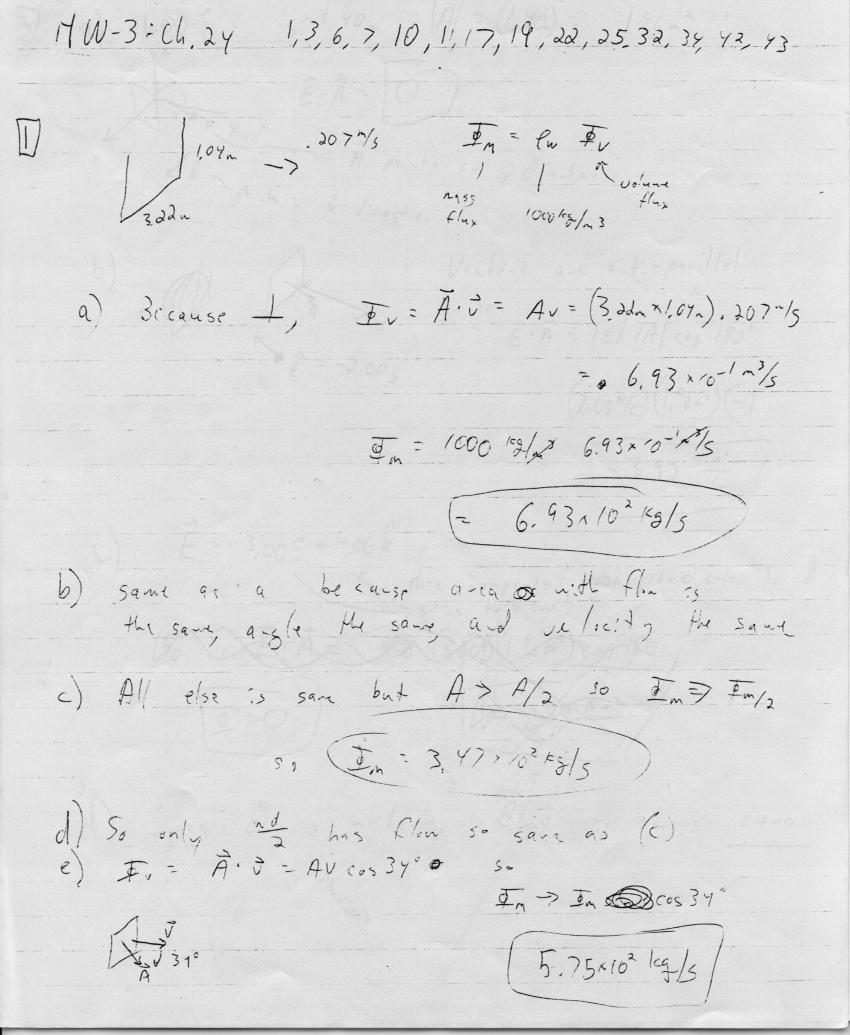 HW-3: Ch. 24 1, 3, 6, 7, 10, 11, 17, 19, 22, 25, 32, 34, 42, 43
1
1.04m → .207 m/s Φm = ρw Φv
3.22m mass flux 1000 kg/m3 volume flux
a) Because ⊥, Φv = A⃗·v⃗ = Av = (3.22m × 1.04m) .207 m/s
= 6.93 × 10⁻¹ m³/s
Φm = 1000 kg/m³ 6.93 × 10⁻¹ m³/s
= 6.93 × 10² kg/s
b) same as a because area with flow is
the same, angle the same, and velocity the same
c) All else is same but A → A/2 so Φm ⇒ Φm/2
so, Φm = 3.47 × 10² kg/s
d) So only wd/2 has flow so same as (c)
e) Φv = A⃗·v⃗ = AV cos 34° so
Φm → Φm cos 34°
v⃗
34°
A⃗
5.75 × 10² kg/s